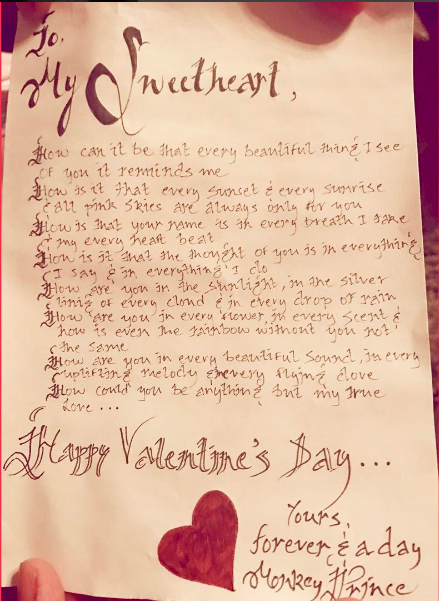 To,
My Sweetheart,
How can it be that every beautiful thing I see
of you it reminds me
How is it that every sunset & every sunrise
& all pink skies are always only for you
How is that your name is in every breath I take
& my every heart beat
How is it that the thought of you is in everything
I say & in everything I do
How are you in the sunlight, in the silver
lining of every cloud & in every drop of rain
How are you in every flower, in every scent &
how is even the rainbow without you not
the same
How are you in every beautiful sound, in every
uplifting melody & every flying dove
How could you be anything but my true
love...
Happy Valentine's Day...
Yours,
forever & a day
Monkey Prince